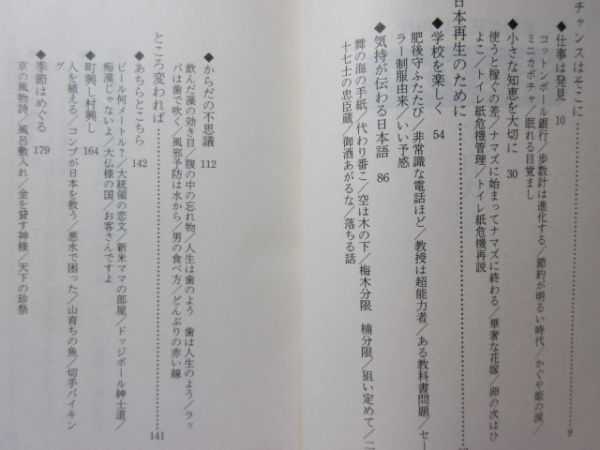 チャンスはそこに……9
◆仕事は発見 10
コットンボール銀行／歩数計は進化する／節約が明るい時代／かぐや姫の涙／
ミニカボチャ／眠れる目覚まし
◆小さな知恵を大切に 30
使うと稼ぐの差／ナマズに始まってナマズに終わる／華奢な花嫁／卵の次はひ
よこ／トイレ紙危機管理／トイレ紙危機再説
日本再生のために……
◆学校を楽しく 54
肥後守ふたたび／非常識な電話ほど／教授は超能力者／ある教科書問題／セー
ラー制服由来／いい予感
◆気持が伝わる日本語 86
舞の海の手紙／代わり番こ／空は木の下／梅木分限 楠分限／狙い定めて／二
十七士の忠臣蔵／御酒あがるな／落ちる話
◆からだの不思議 112
飲んだ藻の効き目／腹の中の忘れ物／人生は歯のよう 歯は人生のよう／ラッ
パは歯で吹く／風邪予防は水から／男の食べ方／どんぶりの赤い線
ところ変われば……141
◆あちらとこちら 142
ビール何メートル？／大統領の恋文／新米ママの部屋／ドッジボール紳士道／
痴漢じゃないよ／大仏様の国／お客さんですよ
◆町興し村興し 164
人を植える／コンブが日本を救う／悪水で困った／山育ちの魚／切手バイキン
グ
◆季節はめぐる 179
京の風物詩／風呂敷入れ／金を貸す神様／天下の珍祭